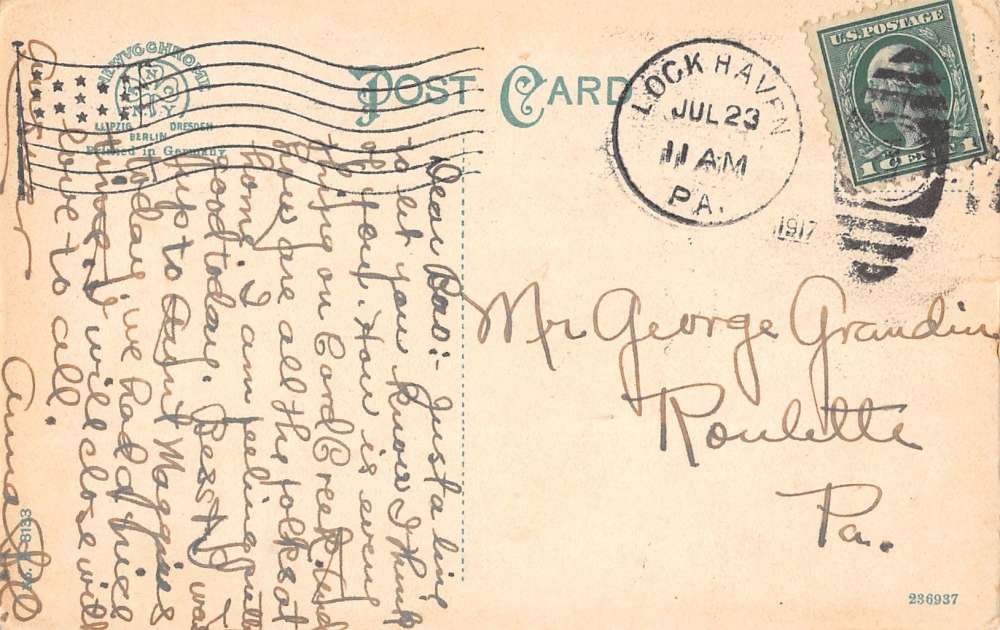 NEWVOCHROME
LEIPZIG DRESDEN
BERLIN
Printed in Germany
POST CARD
LOCK HAVEN
JUL 23
11 AM
PA.
1917
U.S. POSTAGE
1 CENT 1
Mr George Grandin
Roulette
Pa.
Dear Pa :- Just a line
to let you know I think
of you. How is every
thing on Card Creek
How are all the folks at
home, I am feeling
good today. Bess & I
up to Aunt Maggie's
today, we had a nice
time, I will close with
love to all.
Anna
8133
236937